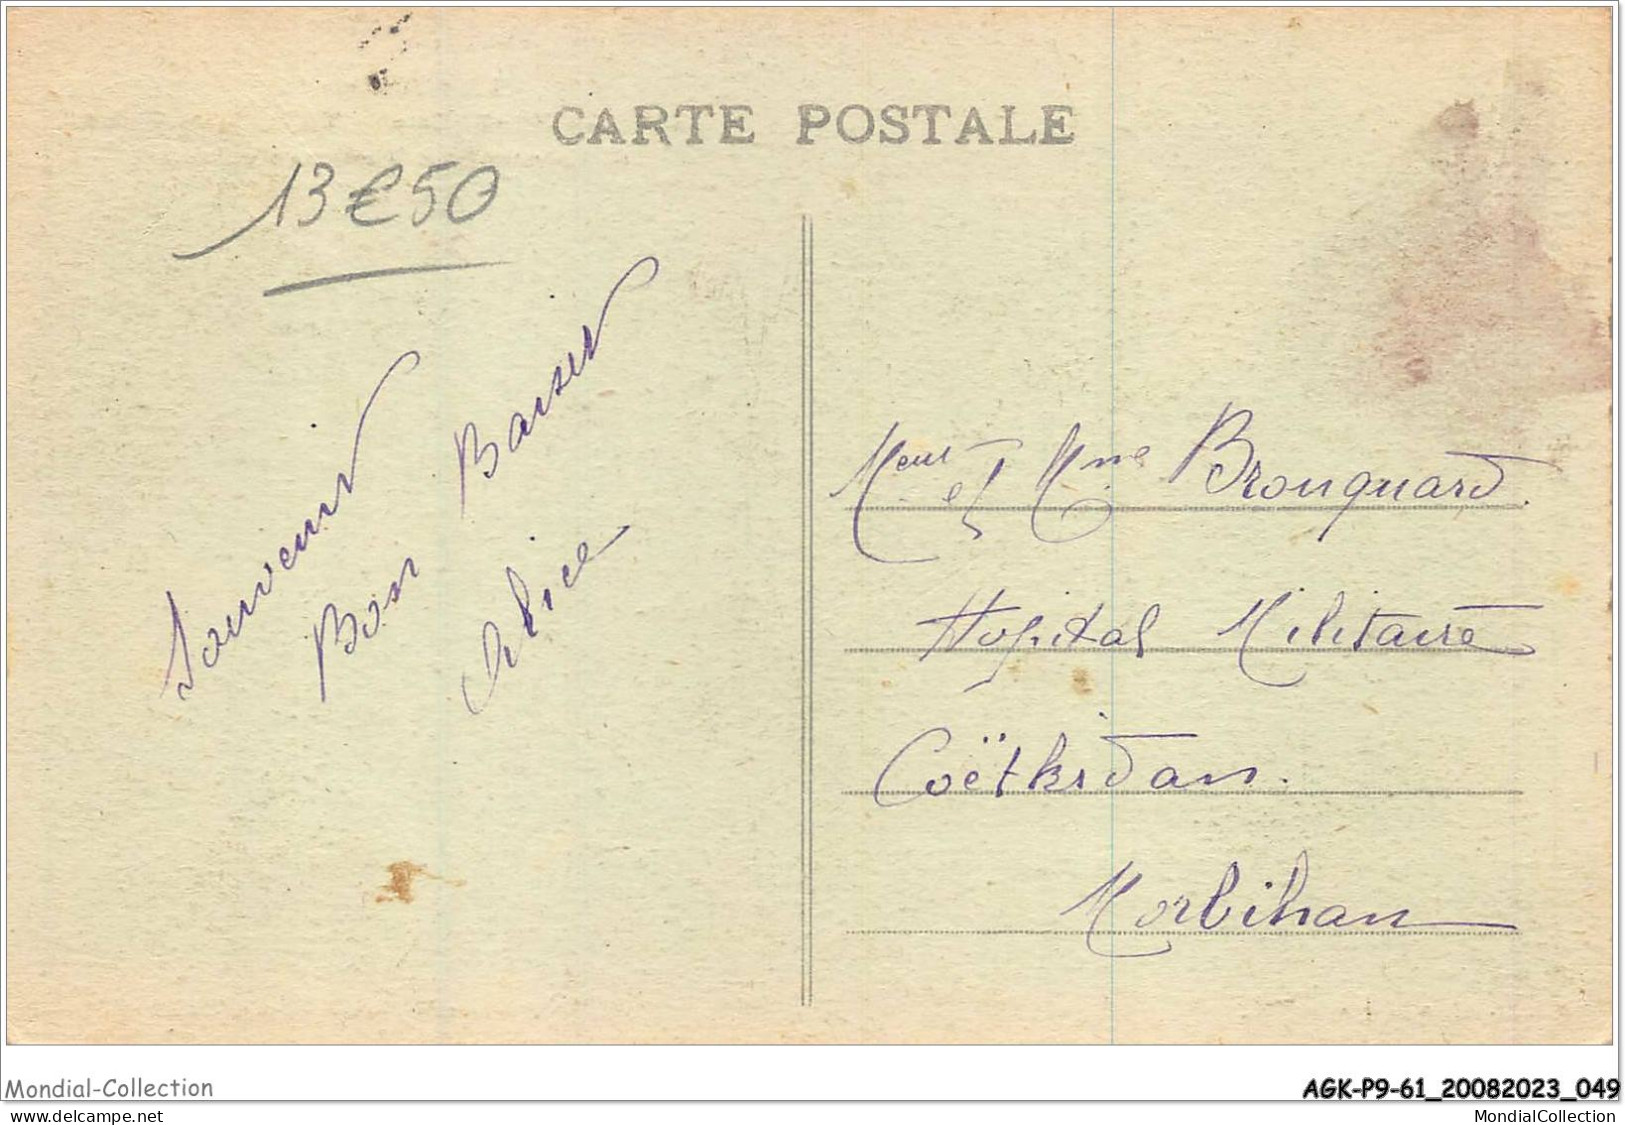 CARTE POSTALE
13€50
Souvenir
Bon Baiser
Alice
Meur et Mme Brouquard.
Hopital Militaire
Coëtkidan.
Morbihan
Mondial-Collection
AGK-P9-61_20082023_049
www.delcampe.net
MondialCollection